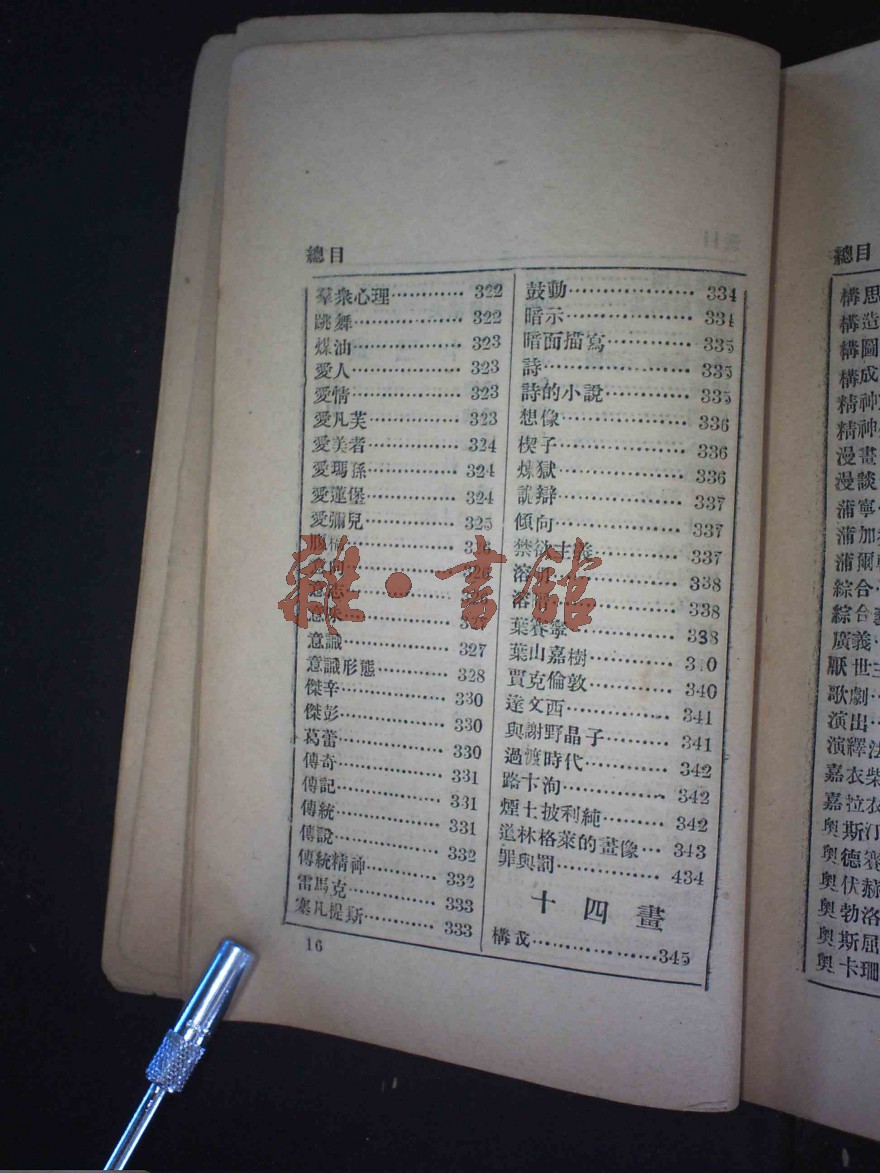 總目
羣衆心理………… 322
跳舞……………… 322
煤油……………… 323
愛人……………… 323
愛情……………… 323
愛凡芙…………… 323
愛美者…………… 324
愛瑪孫…………… 324
愛蓮堡…………… 324
愛彌兒…………… 325
意識……………… 327
意識形態………… 328
傑辛……………… 330
傑彭……………… 330
葛蕾……………… 330
傳奇……………… 331
傳記……………… 331
傳統……………… 331
傳說……………… 332
傳統精神………… 332
雷馬克…………… 333
塞凡提斯………… 333
16
鼓動……………… 334
暗示……………… 334
暗面描寫………… 335
詩………………… 335
詩的小說………… 335
想像……………… 336
楔子……………… 336
煉獄……………… 336
詭辯……………… 337
傾向……………… 337
禁欲主義………… 337
338
338
葉賽寧…………… 338
葉山嘉樹………… 3 0
賈克倫敦………… 340
達文西…………… 341
與謝野晶子……… 341
過渡時代………… 342
路卞洵…………… 342
煙士披利純……… 342
道林格萊的畫像… 343
罪與罰…………… 434
十四畫
構成………………345
雜·書館
總目
構思
構造
構圖
構成
精神
精神
漫畫
漫談
蒲寧
蒲加
蒲爾
綜合
綜合
廣義
厭世主
歌劇
演出
演繹法
嘉衣柴
嘉拉衣
奧斯汀
奧德賽
奧伏赫
奧勃洛
奧斯屈
奧卡珊